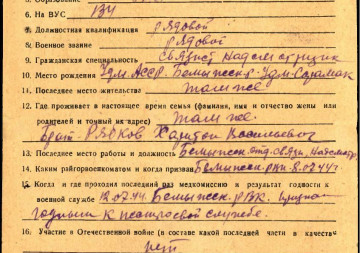 6. На ВУС 134
7. Должностная квалификация рядовой
8. Военное звание рядовой
9. Гражданская специальность связист надсмотрщик
10. Место рождения Удм. АССР. Бемыжск. р
11. Последнее место жительства там же.
12. Где проживает в настоящее время семья (фамилия, имя и отчество жены или
родителей и точный их адрес) там же.
Брат- Рябков Харитон Васильевич
13. Последнее место работы и должность Бемыжск. отд. связи, надсмотр.
14. Каким райгорвоенкоматом и когда призван Бемыжск. рвк. 8.07.44 г
15. Когда и где проходил последний раз медкомиссию и результат годности к
военной службе 12.07.44. Бемыжск. РВК.
годным к нестроевой службе.
16. Участие в Отечественной войне (в составе какой последней части в качестве
нет